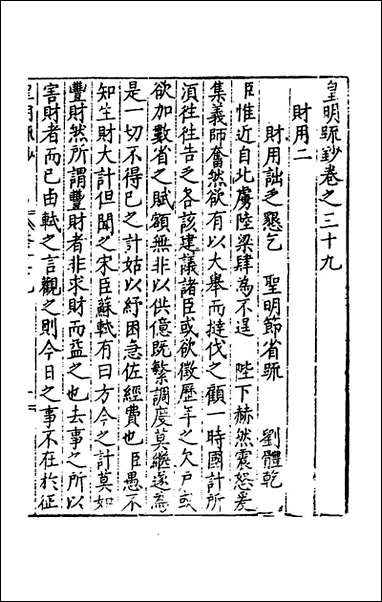 皇明疏鈔卷之三十九
財用二
財用詘乏懇乞　聖明節省疏　劉體乾
臣惟近自北虜陸梁肆為不逞　陛下赫然震怒爰
集義師奮然欲有以大舉而撻伐之顧一時國計所
湏徃徃告乏各該建議諸臣或欲徵歷年之欠戶或
欲加數省之賦額無非以供億既繁調度莫繼遂為
是一切不得已之計姑以紓困急佐經費也臣愚不
知生財大計但聞之宋臣蘇軾有曰方今之計莫如
豐財然所謂豐財者非求財而益之也去事之所以
害財者而已由軾之言觀之則今日之事不在於征